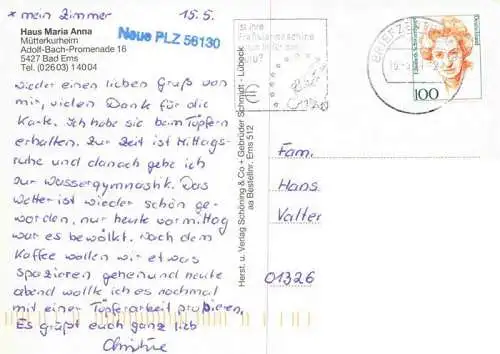 * mein Zimmer 15.5.
Haus Maria Anna
Mütterkurheim
Adolf-Bach-Promenade 16
5427 Bad Ems
Tel. (02603) 14004
Neue PLZ 56130
wieder einen lieben Gruß von
mir, vielen Dank für die
Karte. Ich habe sie beim Töpfern
erhalten. Zur Zeit ist Mittags-
ruhe und danach gehe ich
zur Wassergymnastik. Das
Wetter ist wieder schön ge-
worden, nur heute vormittag
war es bewölkt. Nach dem
Kaffee wollen wir etwas
spazieren gehen und heute
abend wollte ich es nochmal
mit einer Töpferarbeit probieren,
Es grüßt euch ganz lieb
Christine
Herst. u. Verlag Schöning & Co + Gebrüder Schmidt - Lübeck
Bestellnr. Ems 512
Ist Ihre
Frankiermaschine
€
BRIEFZENTRUM
Deutschland
100
Fam.
Hans
Valter
01326